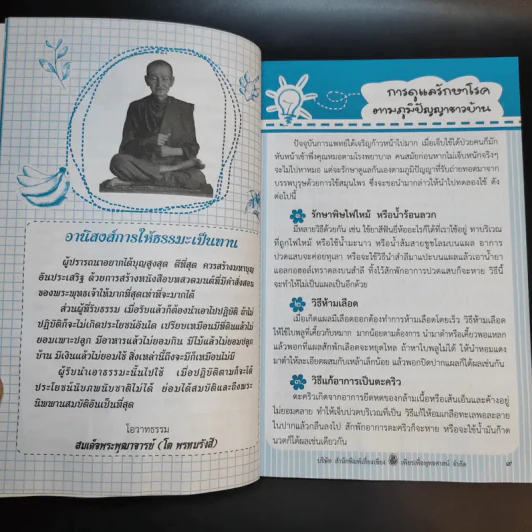 อานิสงส์การให้ธรรมะเป็นทาน
ผู้ปรารถนาอยากได้บุญสูงสุด ดีที่สุด ควรสร้างมหาบุญ
อันประเสริฐ ด้วยการสร้างหนังสือบทสวดมนต์ที่มีคำสั่งสอน
ของพระพุทธเจ้าให้มากที่สุดเท่าที่จะมากได้
ส่วนผู้ที่รับธรรม เมื่อรับแล้วก็ต้องนำเอาไปปฏิบัติ ถ้าไม่
ปฏิบัติก็จะไม่เกิดประโยชน์อันใด เปรียบเหมือนมีที่ดินแล้วไม่
ยอมเพาะปลูก มีอาหารแล้วไม่ยอมกิน มีไม้แล้วไม่ยอมปลูก
บ้าน มีเงินแล้วไม่ยอมใช้ สิ่งเหล่านี้ถึงจะมีก็เหมือนไม่มี
ผู้รับนำเอาธรรมะนั้นไปใช้ เมื่อปฏิบัติตามก็จะได้
ประโยชน์นับภพนับชาติไม่ได้ ย่อมได้สมบัติและถึงพระ
นิพพานสมบัติอันเป็นที่สุด
โอวาทธรรม
สมเด็จพระพุฒาจารย์ (โต พรหมรังสี)
การดูแลรักษาโรค
ตามภูมิปัญญาชาวบ้าน
ปัจจุบันการแพทย์ได้เจริญก้าวหน้าไปมาก เมื่อเจ็บไข้ได้ป่วยคนก็มัก
หันหน้าเข้าพึ่งคุณหมอตามโรงพยาบาล คนสมัยก่อนหากไม่เจ็บหนักจริงๆ
จะไม่ไปหาหมอ แต่จะรักษาดูแลกันเองตามภูมิปัญญาที่รับถ่ายทอดมาจาก
บรรพบุรุษด้วยการใช้สมุนไพร ซึ่งจะขอนำมากล่าวให้นำไปทดลองใช้ ดัง
ต่อไปนี้
๑ รักษาพิษไฟไหม้ หรือน้ำร้อนลวก
มีหลายวิธีด้วยกัน เช่น ใช้ยาสีฟันยี่ห้ออะไรก็ได้ที่เราใช้อยู่ ทาบริเวณ
ที่ถูกไฟไหม้ หรือใช้น้ำมะนาว หรือน้ำส้มสายชูชโลมบนแผล อาการ
ปวดแสบจะค่อยทุเลา หรือจะใช้วิธีนำสำลีมาแปะบนแผลแล้วเอาน้ำยา
แอลกอฮอล์เทราดลงบนสำลี ทิ้งไว้สักพักอาการปวดแสบก็จะหาย วิธีนี้
จะทำให้ไม่เป็นแผลเป็นอีกด้วย
๒ วิธีห้ามเลือด
เมื่อเกิดแผลมีเลือดออกต้องทำการห้ามเลือดโดยเร็ว วิธีห้ามเลือด
ให้ใช้ใบพลูที่เคี้ยวกับหมาก มากน้อยตามต้องการ นำมาตำหรือเคี้ยวพอแหลก
แล้วพอกที่แผลสักพักเลือดจะหยุดไหล ถ้าหาใบพลูไม่ได้ ให้นำหอมแดง
มาตำให้ละเอียดผสมกับเหล้าเล็กน้อย แล้วพอกปิดปากแผลก็ได้ผลเช่นกัน
๓ วิธีแก้อาการเป็นตะคริว
ตะคริวเกิดจากอาการยืดหดของกล้ามเนื้อหรือเส้นเอ็นและค้างอยู่
ไม่ยอมคลาย ทำให้เจ็บปวดบริเวณที่เป็น วิธีแก้ให้อมเกลือทะเลพอละลาย
ในปากแล้วกลืนลงไป สักพักอาการตะคริวก็จะหาย หรือจะใช้น้ำมันก๊าด
นวดก็ได้ผลเช่นเดียวกัน
บริษัท สำนักพิมพ์เลี่ยงเชียง เพียรเพื่อพุทธศาสน์ จำกัด